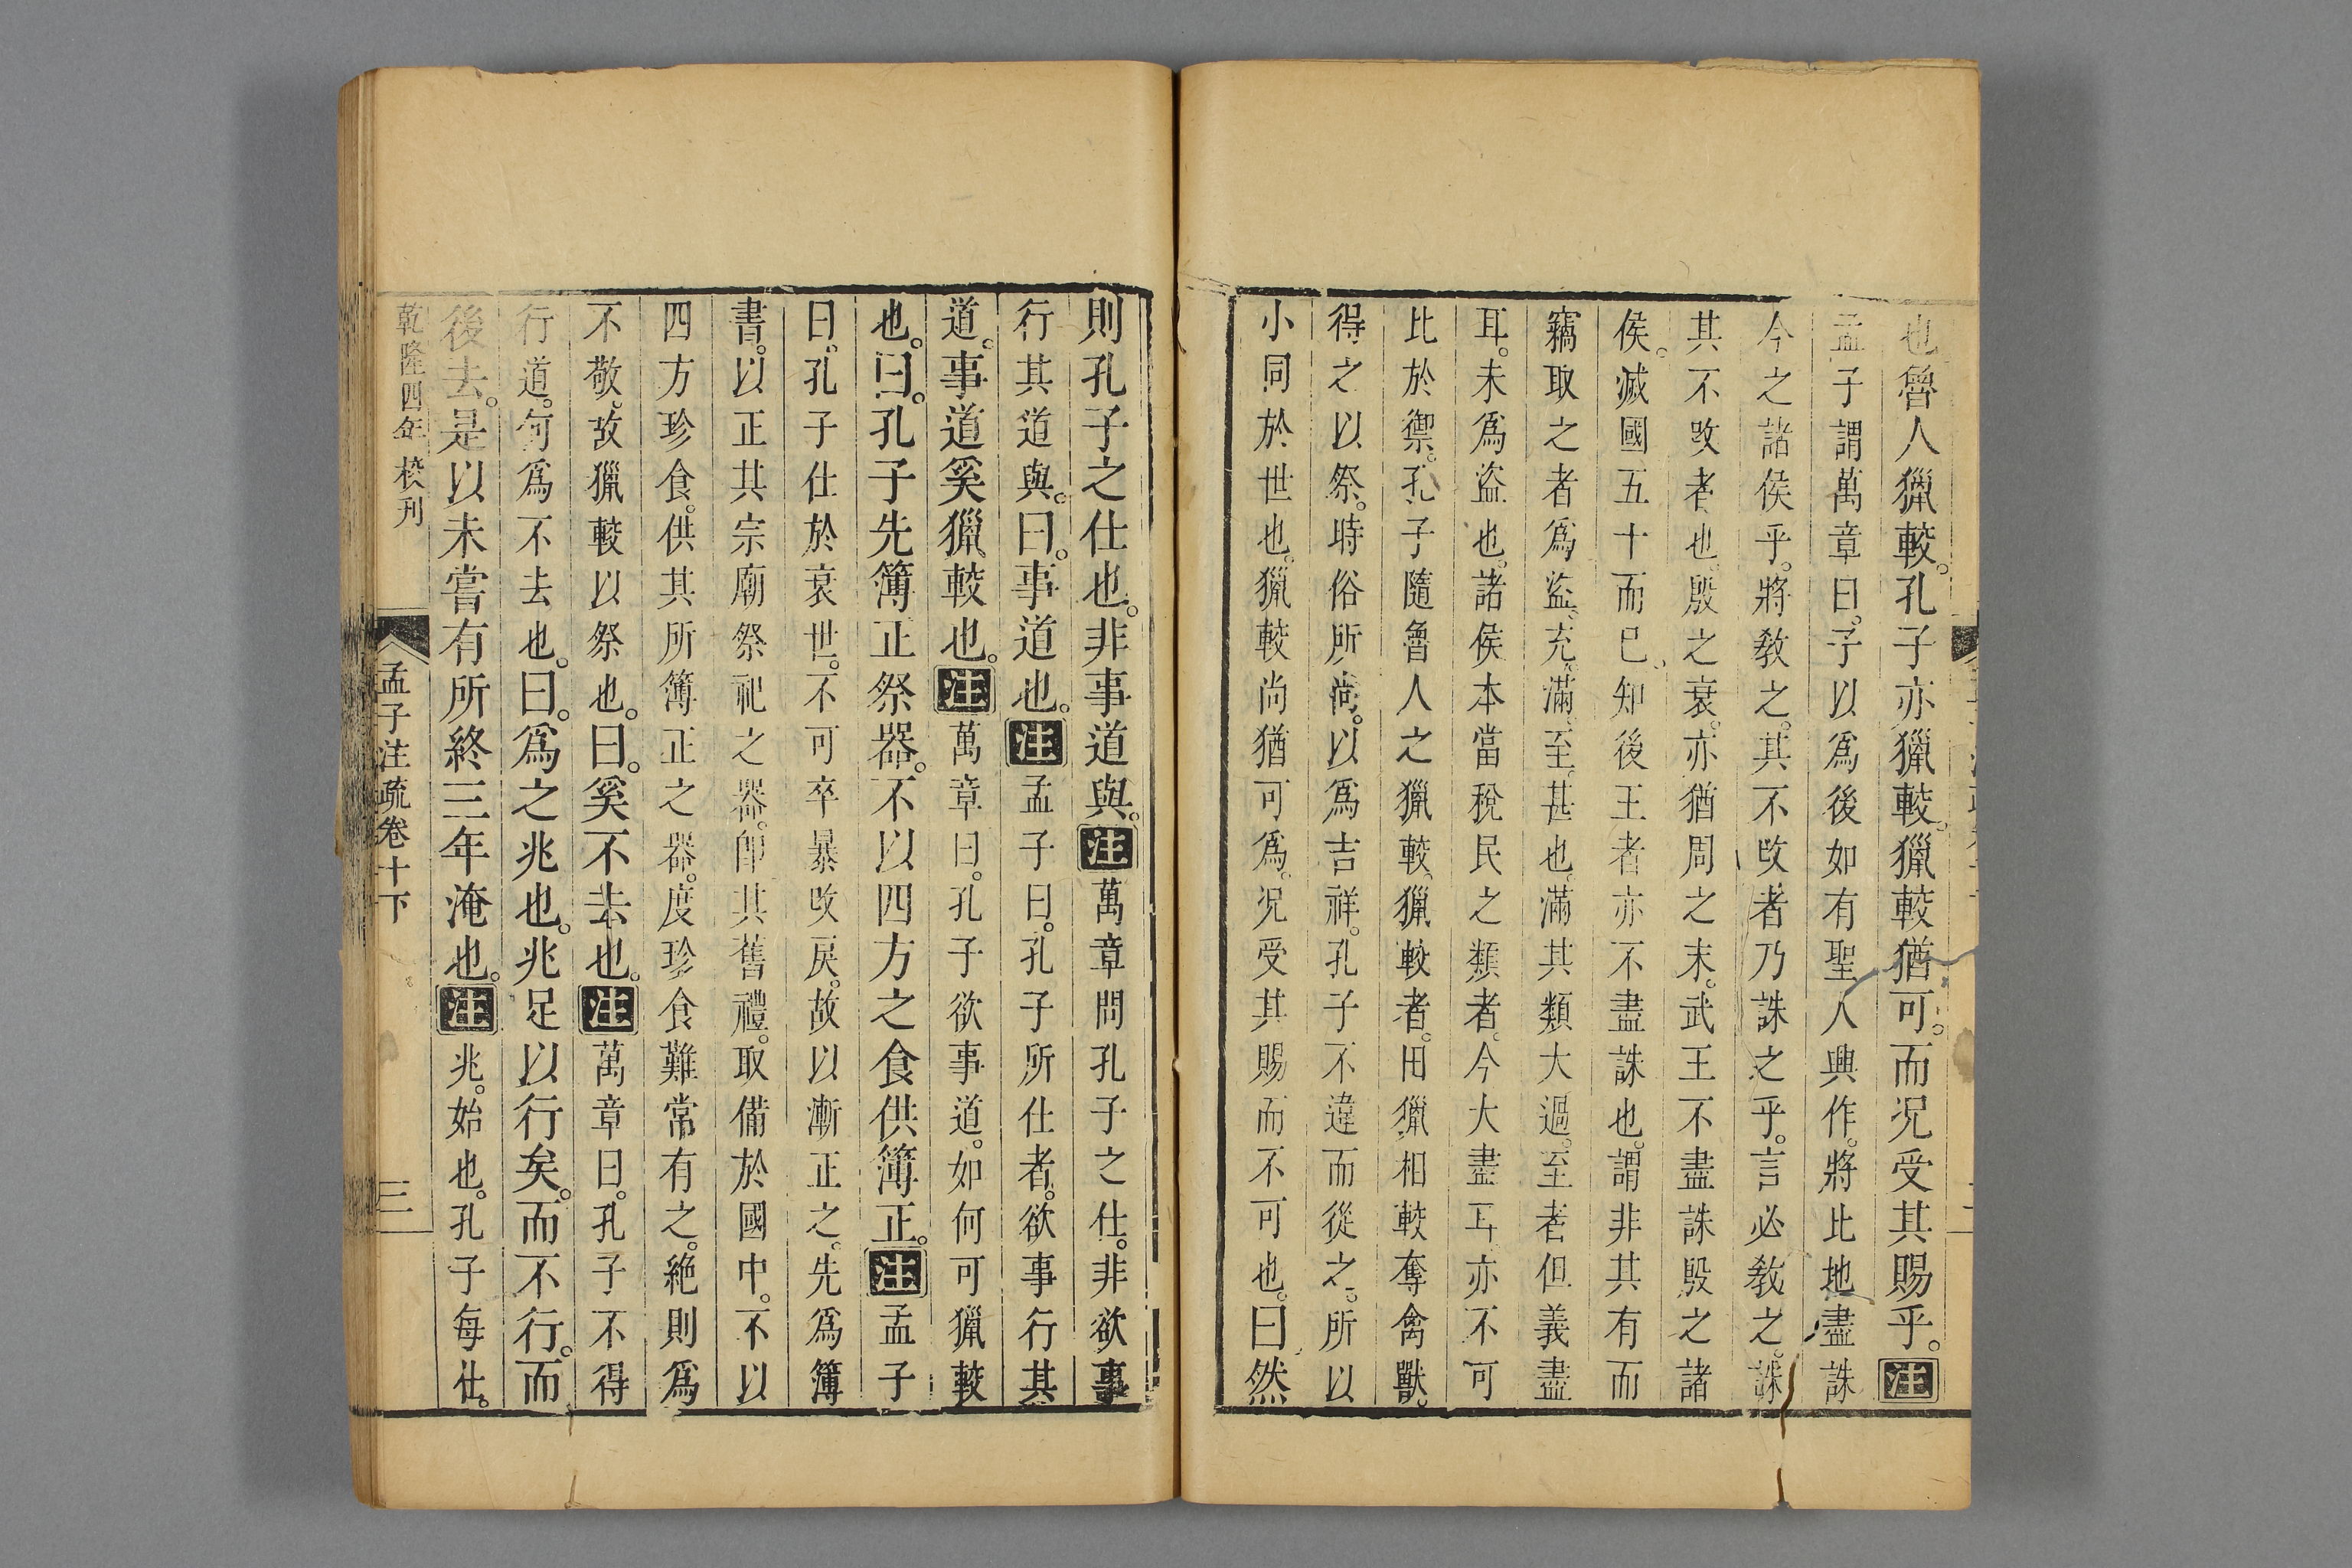 也魯人獵較。孔子亦獵較。獵較猶可。而況受其賜乎。注
孟子謂萬章曰。子以爲後如有聖人興作。將比地盡誅
今之諸侯乎。將敎之。其不改者乃誅之乎。言必敎之。誅
其不改者也。殷之衰。亦猶周之末。武王不盡誅殷之諸
侯。滅國五十而已。知後王者亦不盡誅也。謂非其有而
竊取之者爲盜。充滿。至。甚也。滿其類大過。至者但義盡
耳。未爲盜也。諸侯本當稅民之類者。今大盡耳。亦不可
比於禦。孔子隨魯人之獵較。獵較者。田獵相較奪禽獸。
得之以祭。時俗所尚。以爲吉祥。孔子不違而從之。所以
小同於世也。獵較尚猶可爲。況受其賜而不可也。曰然
則孔子之仕也。非事道與。注萬章問孔子之仕。非欲事
行其道與。曰。事道也。注孟子曰。孔子所仕者。欲事行其
道。事道奚獵較也。注萬章曰。孔子欲事道。如何可獵較
也。曰。孔子先簿正祭器。不以四方之食供簿正。注孟子
曰。孔子仕於衰世。不可卒暴改戾。故以漸正之。先爲簿
書。以正其宗廟祭祀之器。卽其舊禮。取備於國中。不以
四方珍食。供其所簿正之器。度珍食難常有之。絶則爲
不敬。故獵較以祭也。曰。奚不去也。注萬章曰。孔子不得
行道。何爲不去也。曰。爲之兆也。兆足以行矣。而不行。而
後去。是以未嘗有所終三年淹也。注兆。始也。孔子每仕。
乾隆四年校刊
孟子注疏卷十下
三